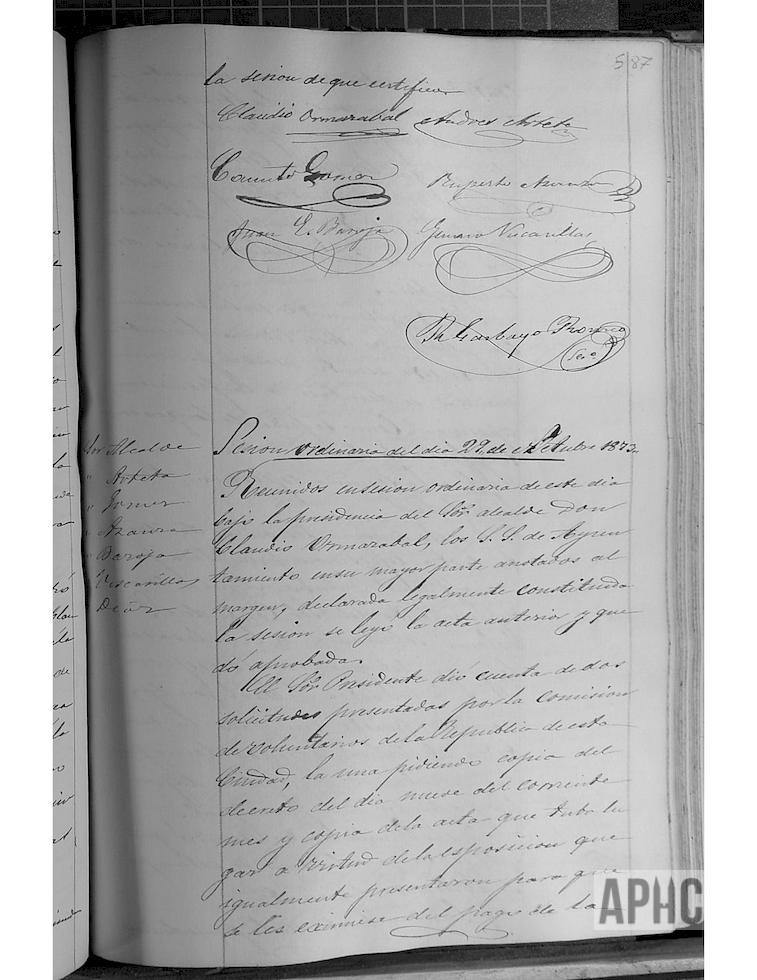 587
la sesion de que certifico
Claudio Ormazabal Andres Arteta
Gomez Ruperto
Juan E. Baroja Genaro Viscarillas
Garbayo
Secº
Sor Alcalde
" Arteta
" Gomez
" Azanza
" Baroja
Viscarillas
Sesion ordinaria del dia 29 de Octubre 1873.
Reunidos en sesion ordinaria de este dia
bajo la presidencia del Sor. alcalde Don
Claudio Ormazabal, los S. S. de Ayun
tamiento en su mayor parte anotados al
margen, declarada legalmente constituida
la sesion se leyó la acta anterior y que
dó aprobada.
El Sor. Presidente dió cuenta de dos
solicitudes presentadas por la comision
de voluntarios de la Republica de esta
Ciudad, la una pidiendo copia del
decreto del dia nueve del corriente
mes y copia de la acta que tubo lu
gar a virtud de la esposicion que
igualmente presentaron para que
se les eximiese del pago de la
APHC